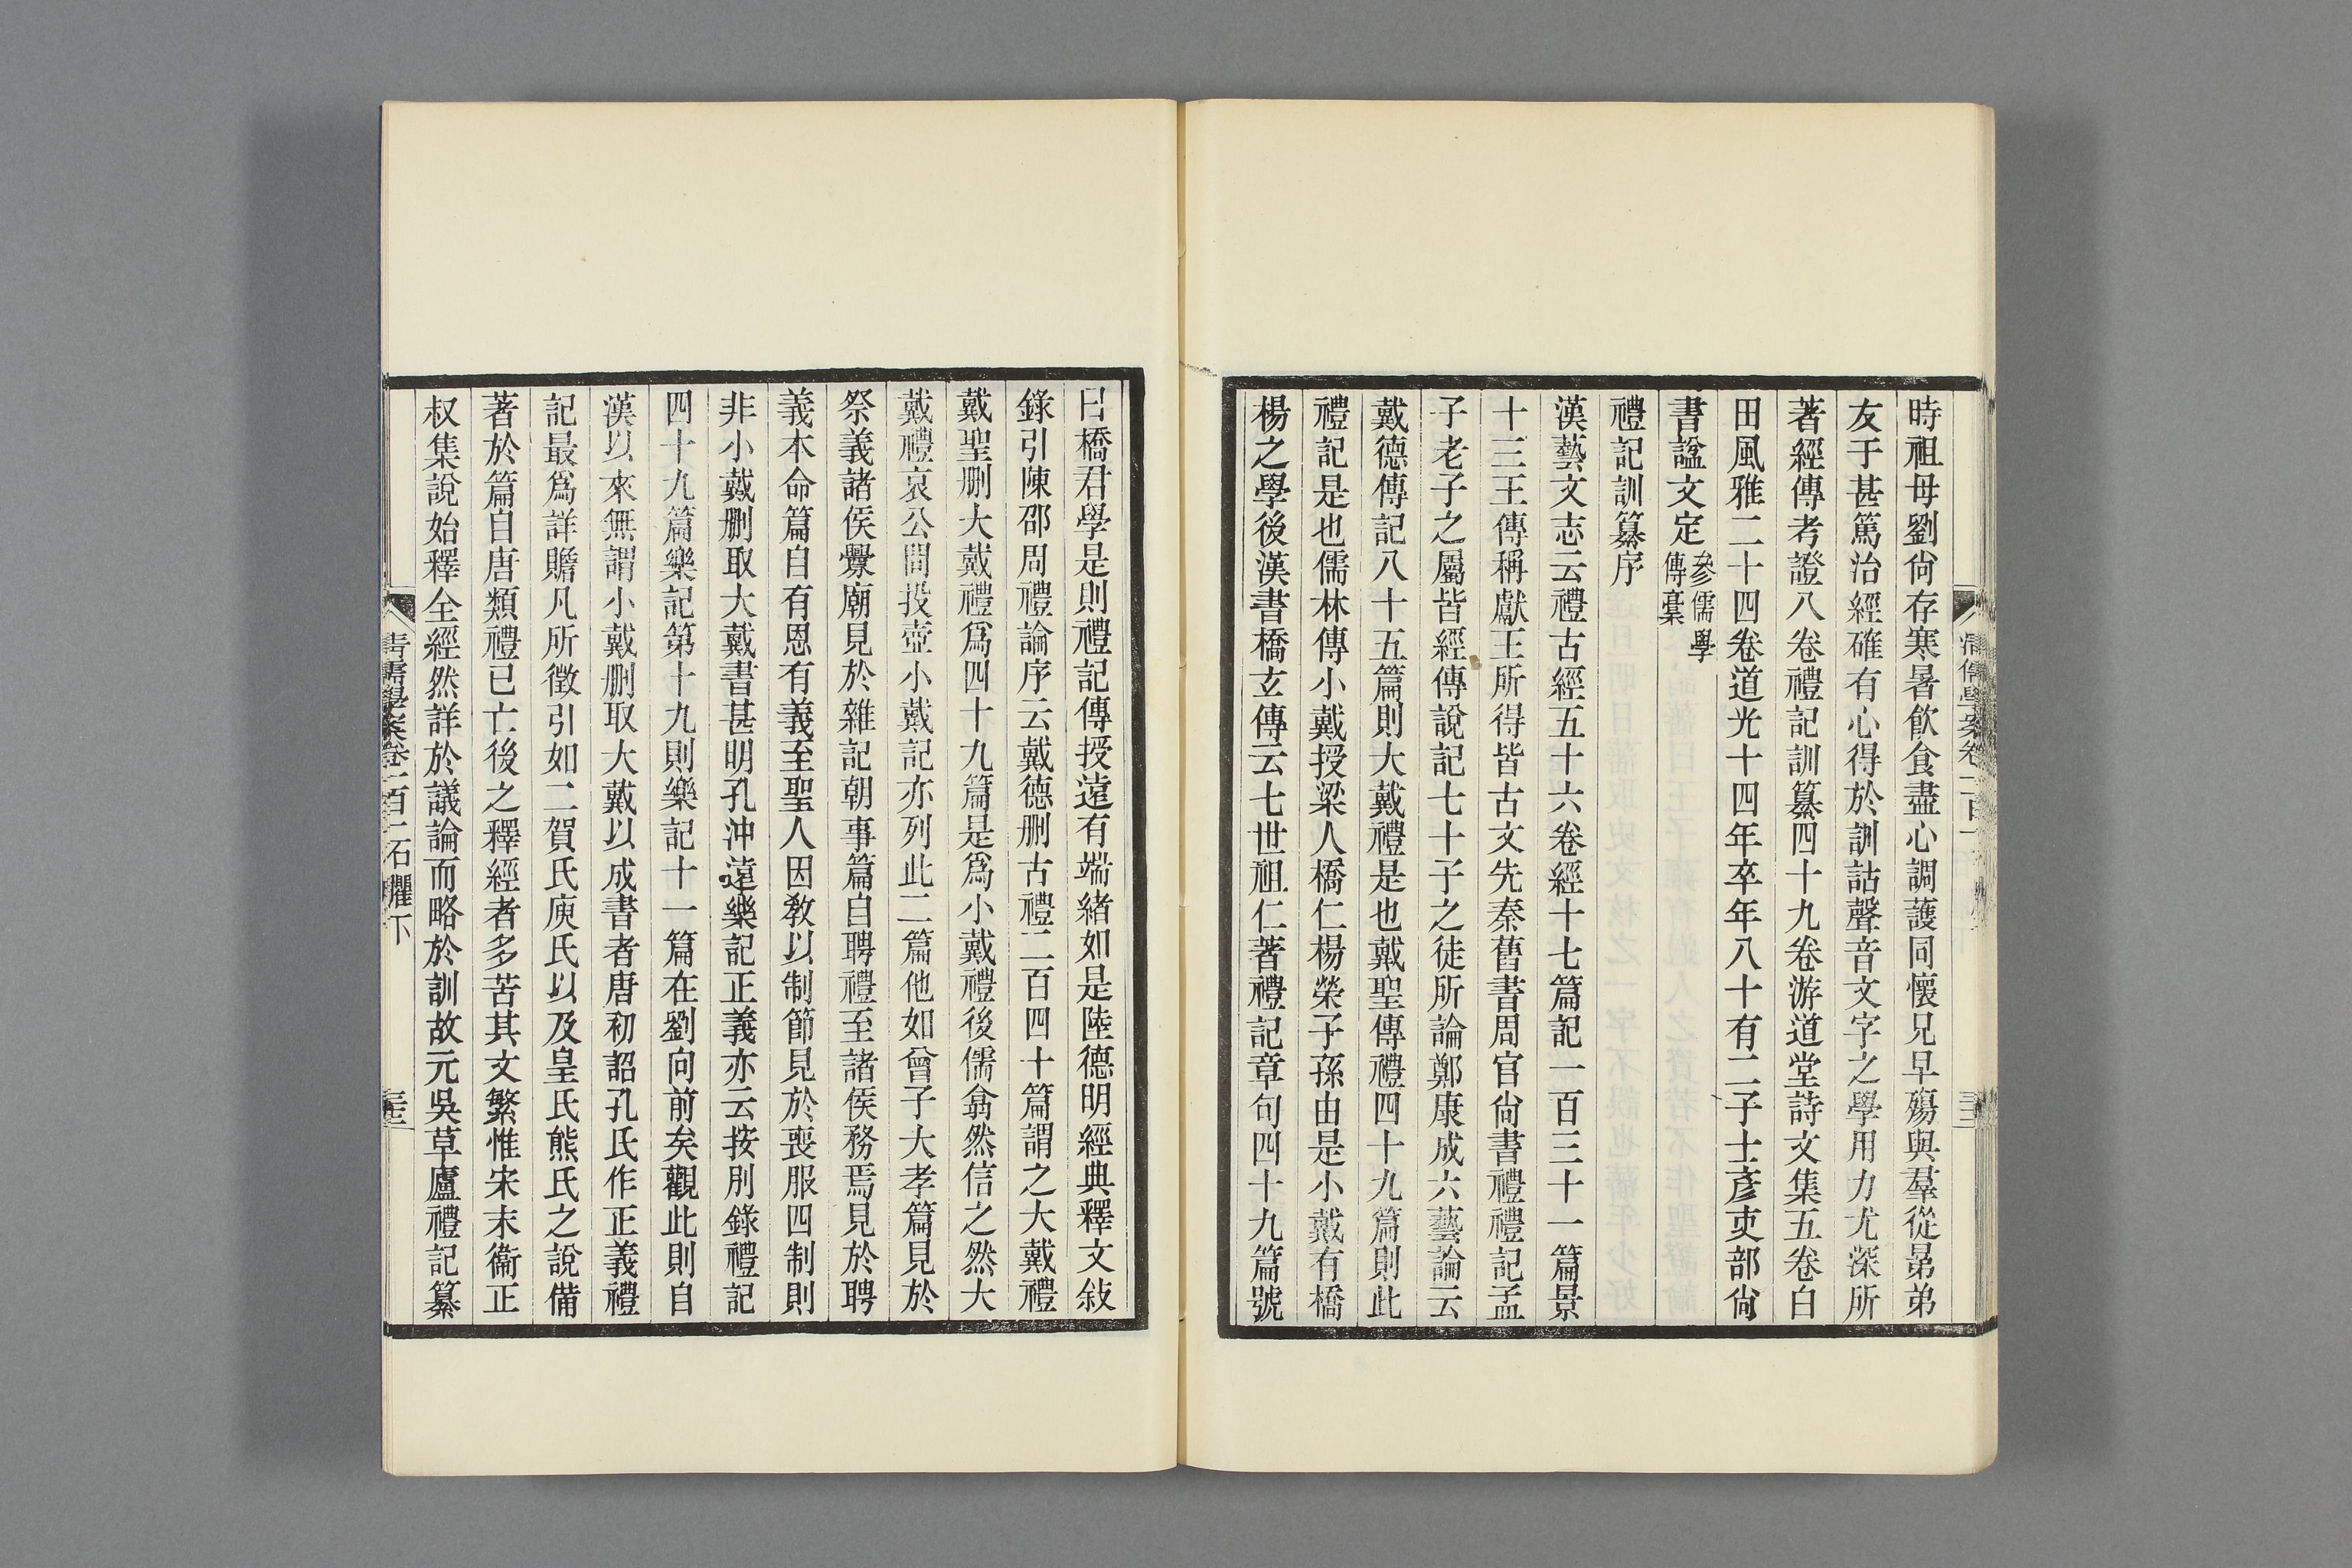 時祖母劉尙存寒暑飮食盡心調護同懷兄早殤與羣從晜弟
友于甚篤治經確有心得於訓詁聲音文字之學用力尤深所
著經傳考證八卷禮記訓纂四十九卷游道堂詩文集五卷白
田風雅二十四卷道光十四年卒年八十有二子士彥吏部尙
書諡文定參儒學
傳稾
禮記訓纂序
漢藝文志云禮古經五十六卷經十七篇記一百三十一篇景
十三王傳稱獻王所得皆古文先秦舊書周官尙書禮禮記孟
子老子之屬皆經傳說記七十子之徒所論鄭康成六藝論云
戴德傳記八十五篇則大戴禮是也戴聖傳禮四十九篇則此
禮記是也儒林傳小戴授梁人橋仁楊榮子孫由是小戴有橋
楊之學後漢書橋玄傳云七世祖仁著禮記章句四十九篇號
曰橋君學是則禮記傳授遠有端緒如是陸德明經典釋文敍
錄引陳邵周禮論序云戴德删古禮二百四十篇謂之大戴禮
戴聖删大戴禮爲四十九篇是爲小戴禮後儒翕然信之然大
戴禮哀公問投壺小戴記亦列此二篇他如曾子大孝篇見於
祭義諸侯釁廟見於雜記朝事篇自聘禮至諸侯務焉見於聘
義本命篇自有恩有義至聖人因敎以制節見於喪服四制則
非小戴删取大戴書甚明孔沖遠樂記正義亦云按別錄禮記
四十九篇樂記第十九則樂記十一篇在劉向前矣觀此則自
漢以來無謂小戴删取大戴以成書者唐初詔孔氏作正義禮
記最爲詳贍凡所徵引如二賀氏庾氏以及皇氏熊氏之說備
著於篇自唐類禮已亡後之釋經者多苦其文繁惟宋末衞正
叔集說始釋全經然詳於議論而略於訓故元吳草廬禮記纂
清儒學案卷一百二石臞下